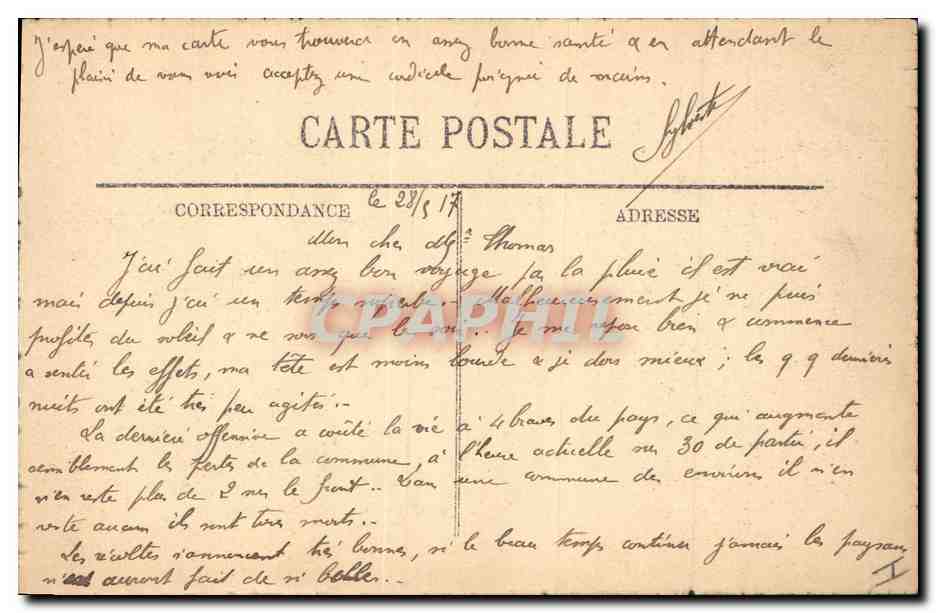 J'espère que ma carte vous trouvera en assez bonne santé & en attendant le
plaisir de vous voir acceptez une cordiale poignée de mains.
Sylvestre
CARTE POSTALE
CORRESPONDANCE
le 28/5 17
ADRESSE
Mon cher Mr Thomas
J'ai fait un assez bon voyage par la pluie il est vrai
mais depuis j'ai un temps superbe.. Malheureusement je ne puis
profiter du soleil & ne sors que le soir.. Je me repose bien & commence
a sentir les effets, ma tête est moins lourde & je dors mieux ; les q.q dernières
nuits ont été très peu agitées..
La dernière offensive a coûté la vie à 4 braves du pays, ce qui augmente
sensiblement les pertes de la commune, à l'heure actuelle sur 30 de partis, il
n'en reste plus de 2 sur le front.. Dans une commune des environs il n'en
reste aucun ils sont tous morts..
Les récoltes s'annoncent très bonnes, si le beau temps continue jamais les paysans
n'auront fait de si belles..
CPAPHIL